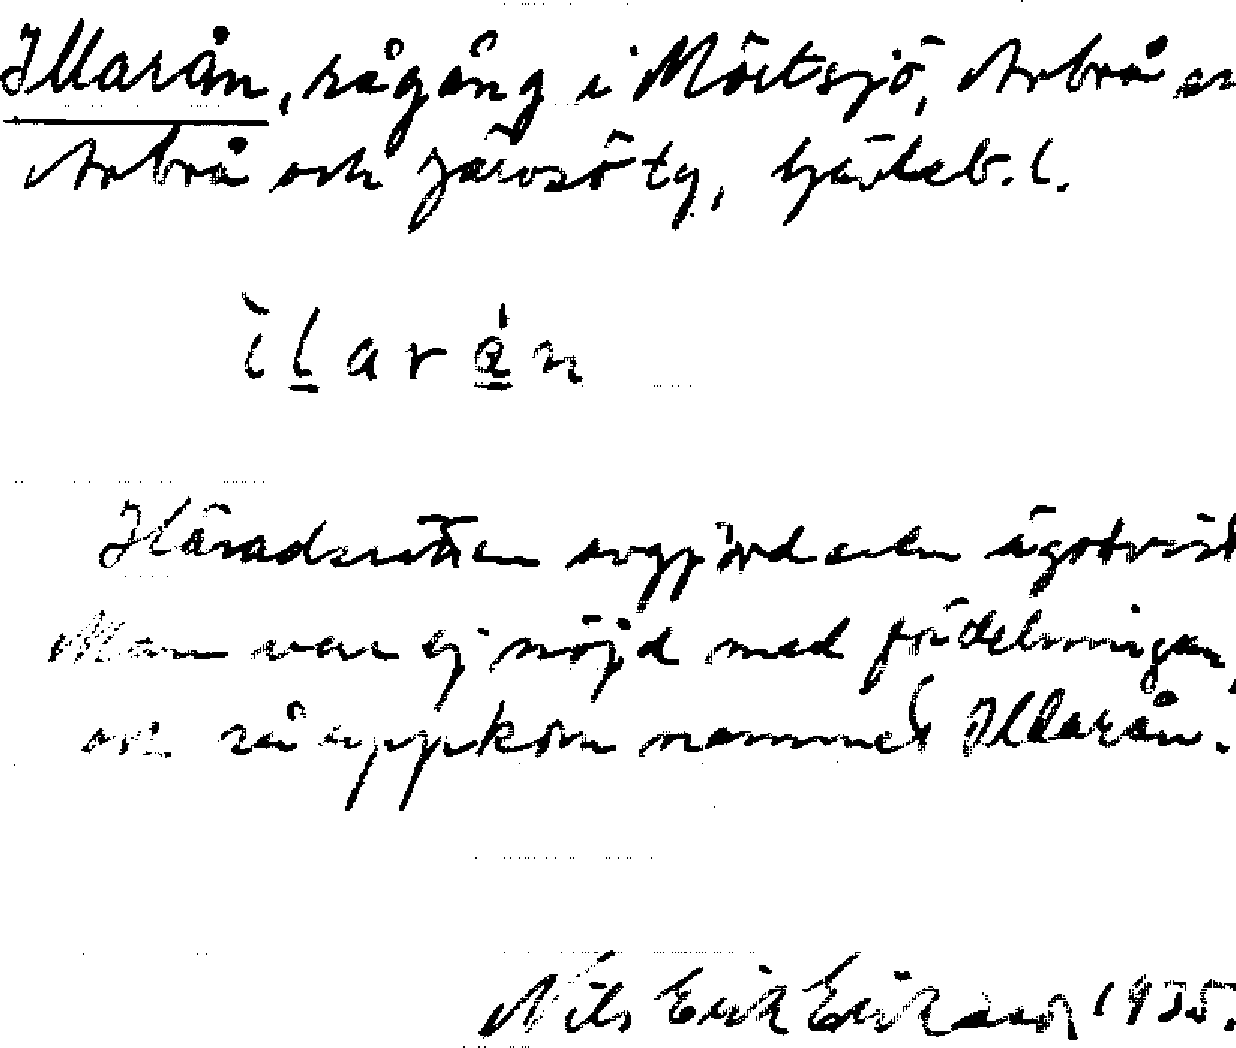 Illarån, rågång i Mörtsjö, Arbrå sn
Arbrå och Järvsö tg, Gävleb. l.
ìlarån
Häradsrätten avgjorde en ägotvist
Man var ej nöjd med fördelningen,
och så uppkom namnet Illarån.
Nils Erik Eriksson 1935.